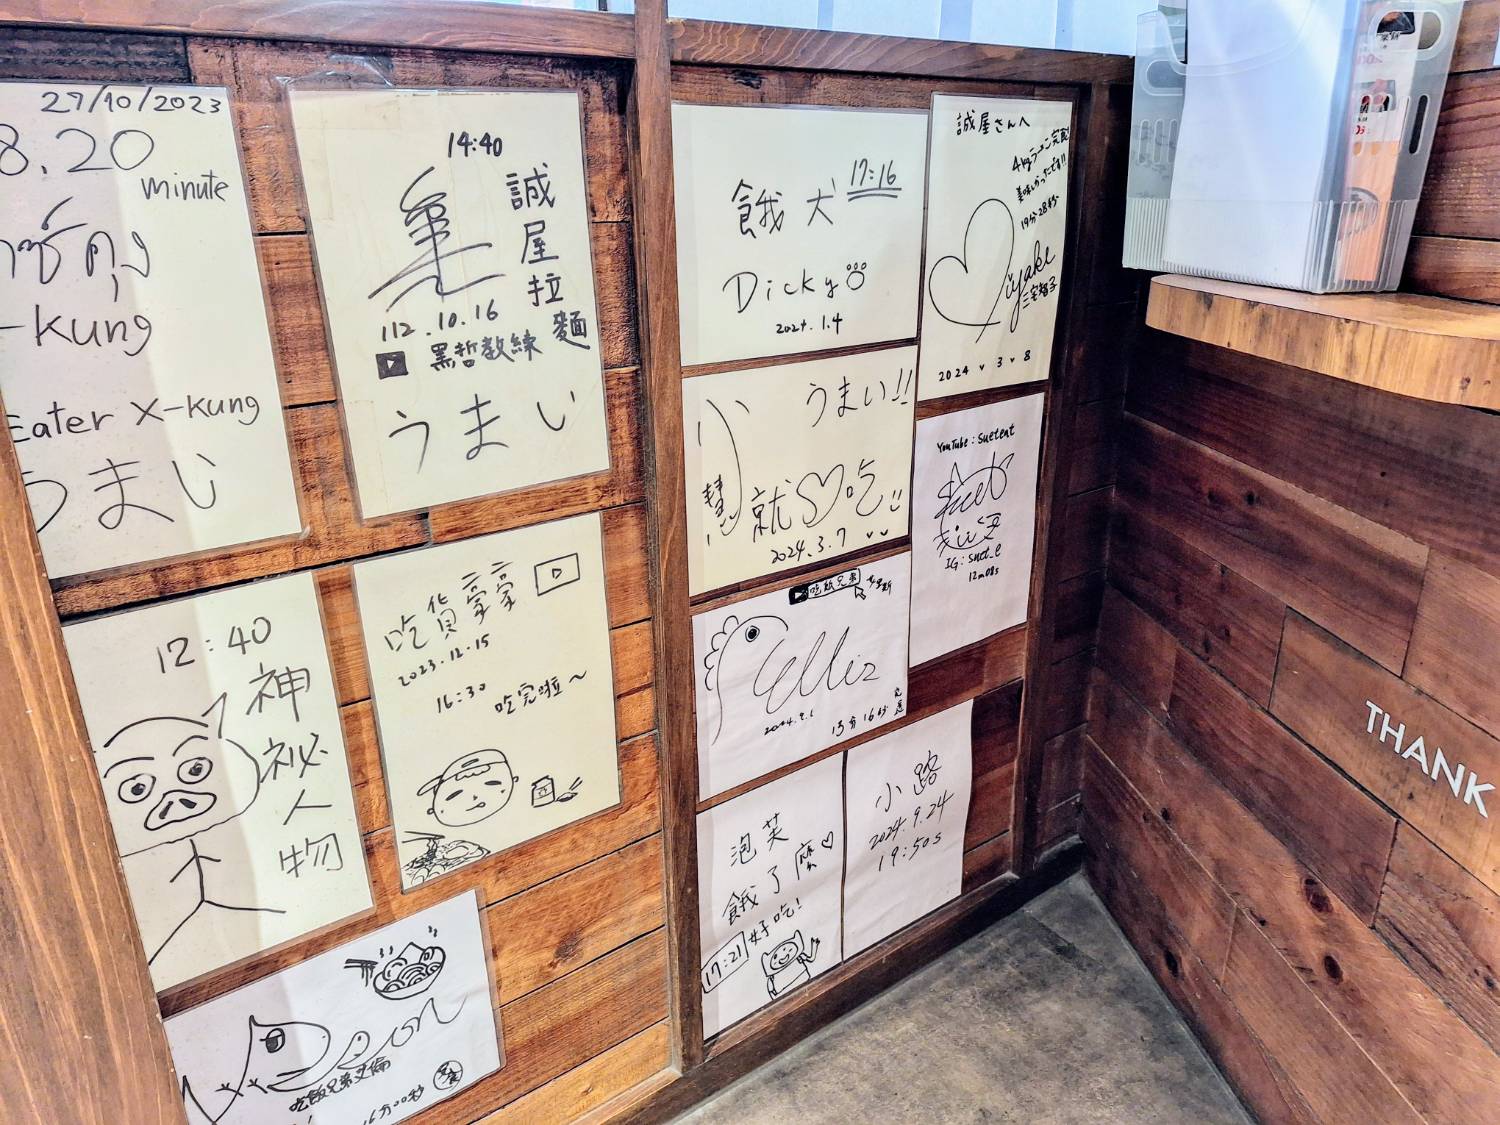 29/10/2023
8.20
minute
-kung
Eater X-kung
うまい
14:40
誠屋拉麵
112.10.16
黑哲教練
うまい
12:40
神祕人物
吃貨豪豪
2023.12.15
16:30
吃完啦～
吃飯兄弟艾倫
16分00秒
餓犬
17:16
Dicky
2024.1.4
誠屋さんへ
4kgラーメン完食
美味しかったです!!
19分28秒
Miyake
三宅智子
2024 3 8
うまい!!
小慧
就♡吃
2024.3.7
YouTube: suetent
IG: suet_e
12m08s
吃飯兄弟
Ellis
13分16秒
泡芙
餓了麼♡
好吃!
17:21
小路
2024.9.24
19:50s
THANK